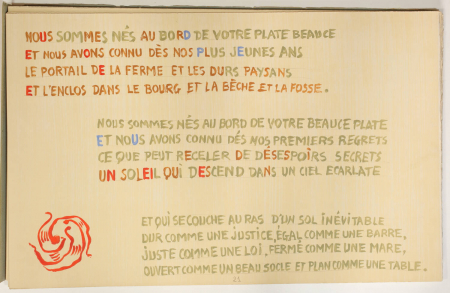 NOUS SOMMES NÉS AU BORD DE VOTRE PLATE BEAUCE
ET NOUS AVONS CONNU DÈS NOS PLUS JEUNES ANS
LE PORTAIL DE LA FERME ET LES DURS PAYSANS
ET L'ENCLOS DANS LE BOURG ET LA BÊCHE ET LA FOSSE.
NOUS SOMMES NÉS AU BORD DE VOTRE BEAUCE PLATE
ET NOUS AVONS CONNU DÉS NOS PREMIERS REGRETS
CE QUE PEUT RECELER DE DÉSESPOIRS SECRETS
UN SOLEIL QUI DESCEND DANS UN CIEL ECARLATE
ET QUI SE COUCHE AU RAS D'UN SOL INÉVITABLE
DUR COMME UNE JUSTICE, ÉGAL COMME UNE BARRE,
JUSTE COMME UNE LOI, FERMÉ COMME UNE MARE,
OUVERT COMME UN BEAU SOCLE ET PLAN COMME UNE TABLE.